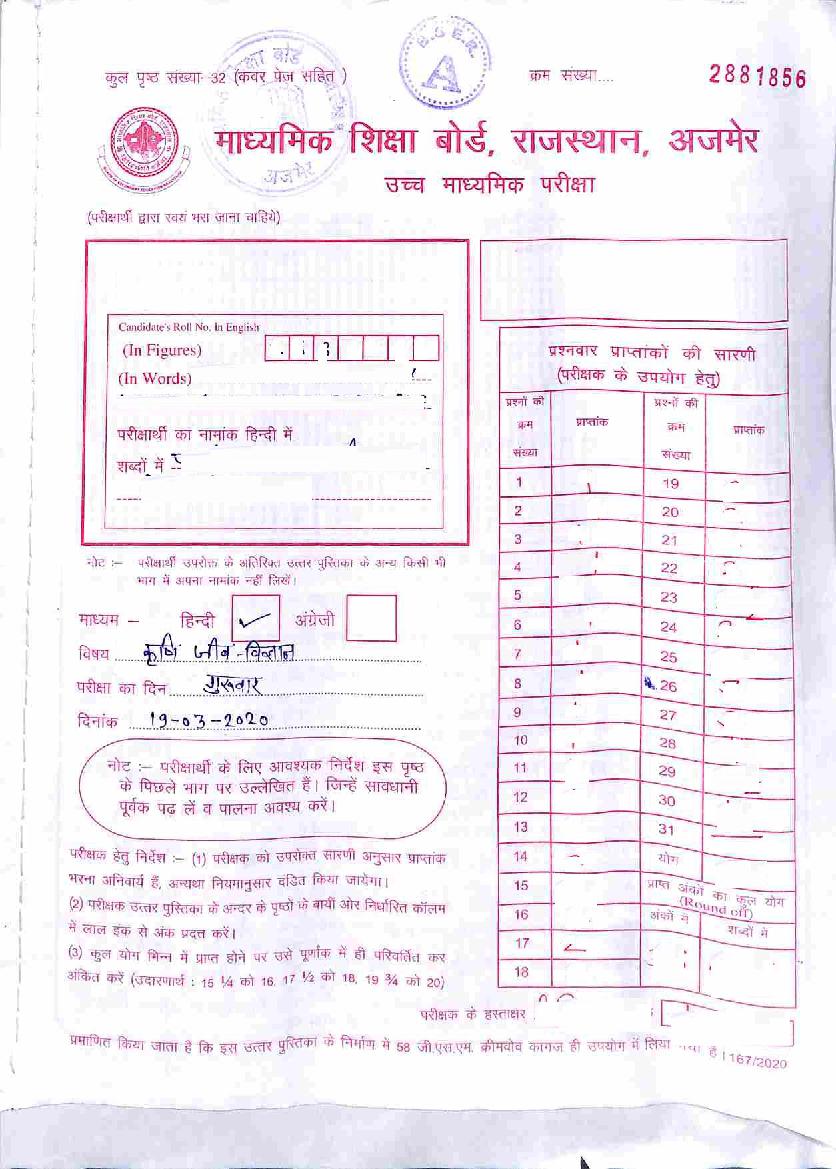 कुल पृष्ठ संख्या- 32 (कवर पेज सहित )
शिक्षा बोर्ड
अजमेर
B.S.E.R.
A
क्रम संख्या....
2881856
माध्यमिक शिक्षा बोर्ड, राजस्थान, अजमेर
उच्च माध्यमिक परीक्षा
(परीक्षार्थी द्वारा स्वयं भरा जाना चाहिये)
Candidate's Roll No. In English
(In Figures)
(In Words)
परीक्षार्थी का नामांक हिन्दी में
शब्दों में
नोट :- परीक्षार्थी उपरोक्त के अतिरिक्त उत्तर पुस्तिका के अन्य किसी भी
भाग में अपना नामांक नहीं लिखें।
माध्यम – हिन्दी ✓ अंग्रेजी
विषय कृषि जीव-विज्ञान
परीक्षा का दिन गुरूवार
दिनांक 19-03-2020
नोट :- परीक्षार्थी के लिए आवश्यक निर्देश इस पृष्ठ
के पिछले भाग पर उल्लेखित हैं। जिन्हें सावधानी
पूर्वक पढ लें व पालना अवश्य करें।
परीक्षक हेतु निर्देश :- (1) परीक्षक को उपरोक्त सारणी अनुसार प्राप्तांक
भरना अनिवार्य हैं, अन्यथा नियमानुसार दंडित किया जायेगा।
(2) परीक्षक उत्तर पुस्तिका के अन्दर के पृष्ठो के बायीं ओर निर्धारित कॉलम
में लाल इंक से अंक प्रदत्त करें।
(3) कुल योग भिन्न में प्राप्त होने पर उसे पूर्णांक में ही परिवर्तित कर
अंकित करें (उदारणार्थ : 15 ¼ को 16, 17 ½ को 18, 19 ¾ को 20)
प्रश्नवार प्राप्तांकों की सारणी
(परीक्षक के उपयोग हेतु)
प्रश्नों की क्रम संख्या प्राप्तांक प्रश्नों की क्रम संख्या प्राप्तांक
1 19
2 20
3 21
4 22
5 23
6 24
7 25
8 26
9 27
10 28
11 29
12 30
13 31
14 योग
15 प्राप्त अंकों का कुल योग (Round off)
16 अंकों में शब्दों में
17
18
परीक्षक के हस्ताक्षर
प्रमाणित किया जाता है कि इस उत्तर पुस्तिका के निर्माण में 58 जी.एस.एम. क्रीमवोव कागज ही उपयोग में लिया है। 167/2020